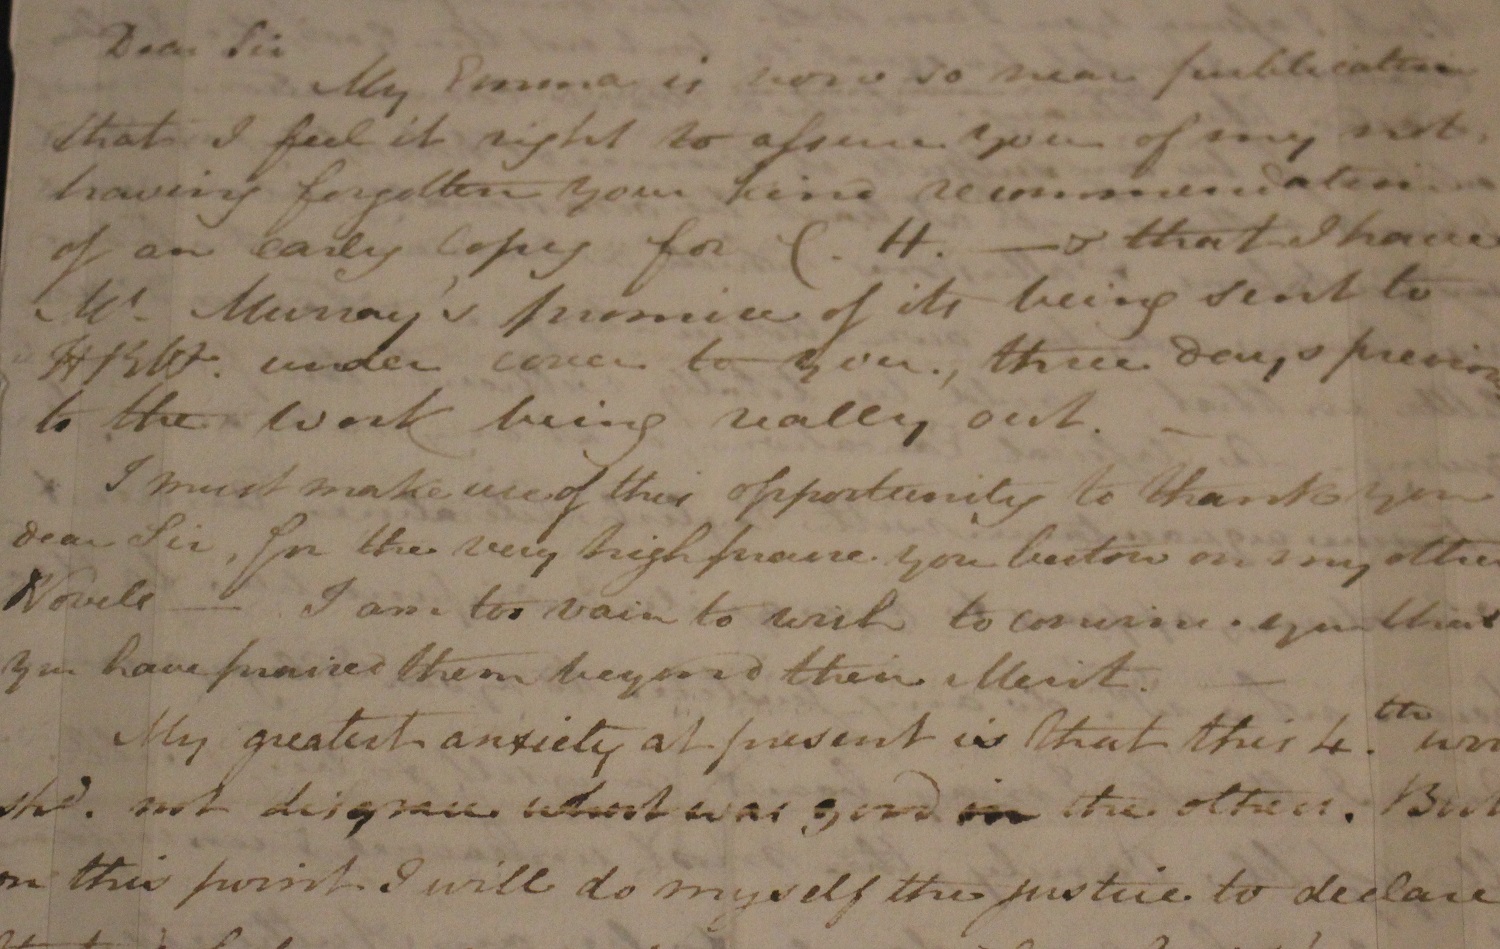 Dear Sir
My Emma is now so near publication
that I feel it right to assure you of my not
having forgotten your kind recommendation
of an early Copy for C. H. —& that I have
Mr. Murray's promise of its being sent to
HRH. under cover to you, three days previous
to the Work being really out. —
I must make use of this opportunity to thank you
dear Sir, for the very high praise you bestow on my other
Novels — I am too vain to wish to convince you that
you have praised them beyond their Merit. —
My greatest anxiety at present is that this 4.th work
shd. not disgrace what was good in the others. But
on this point I will do myself the justice to declare